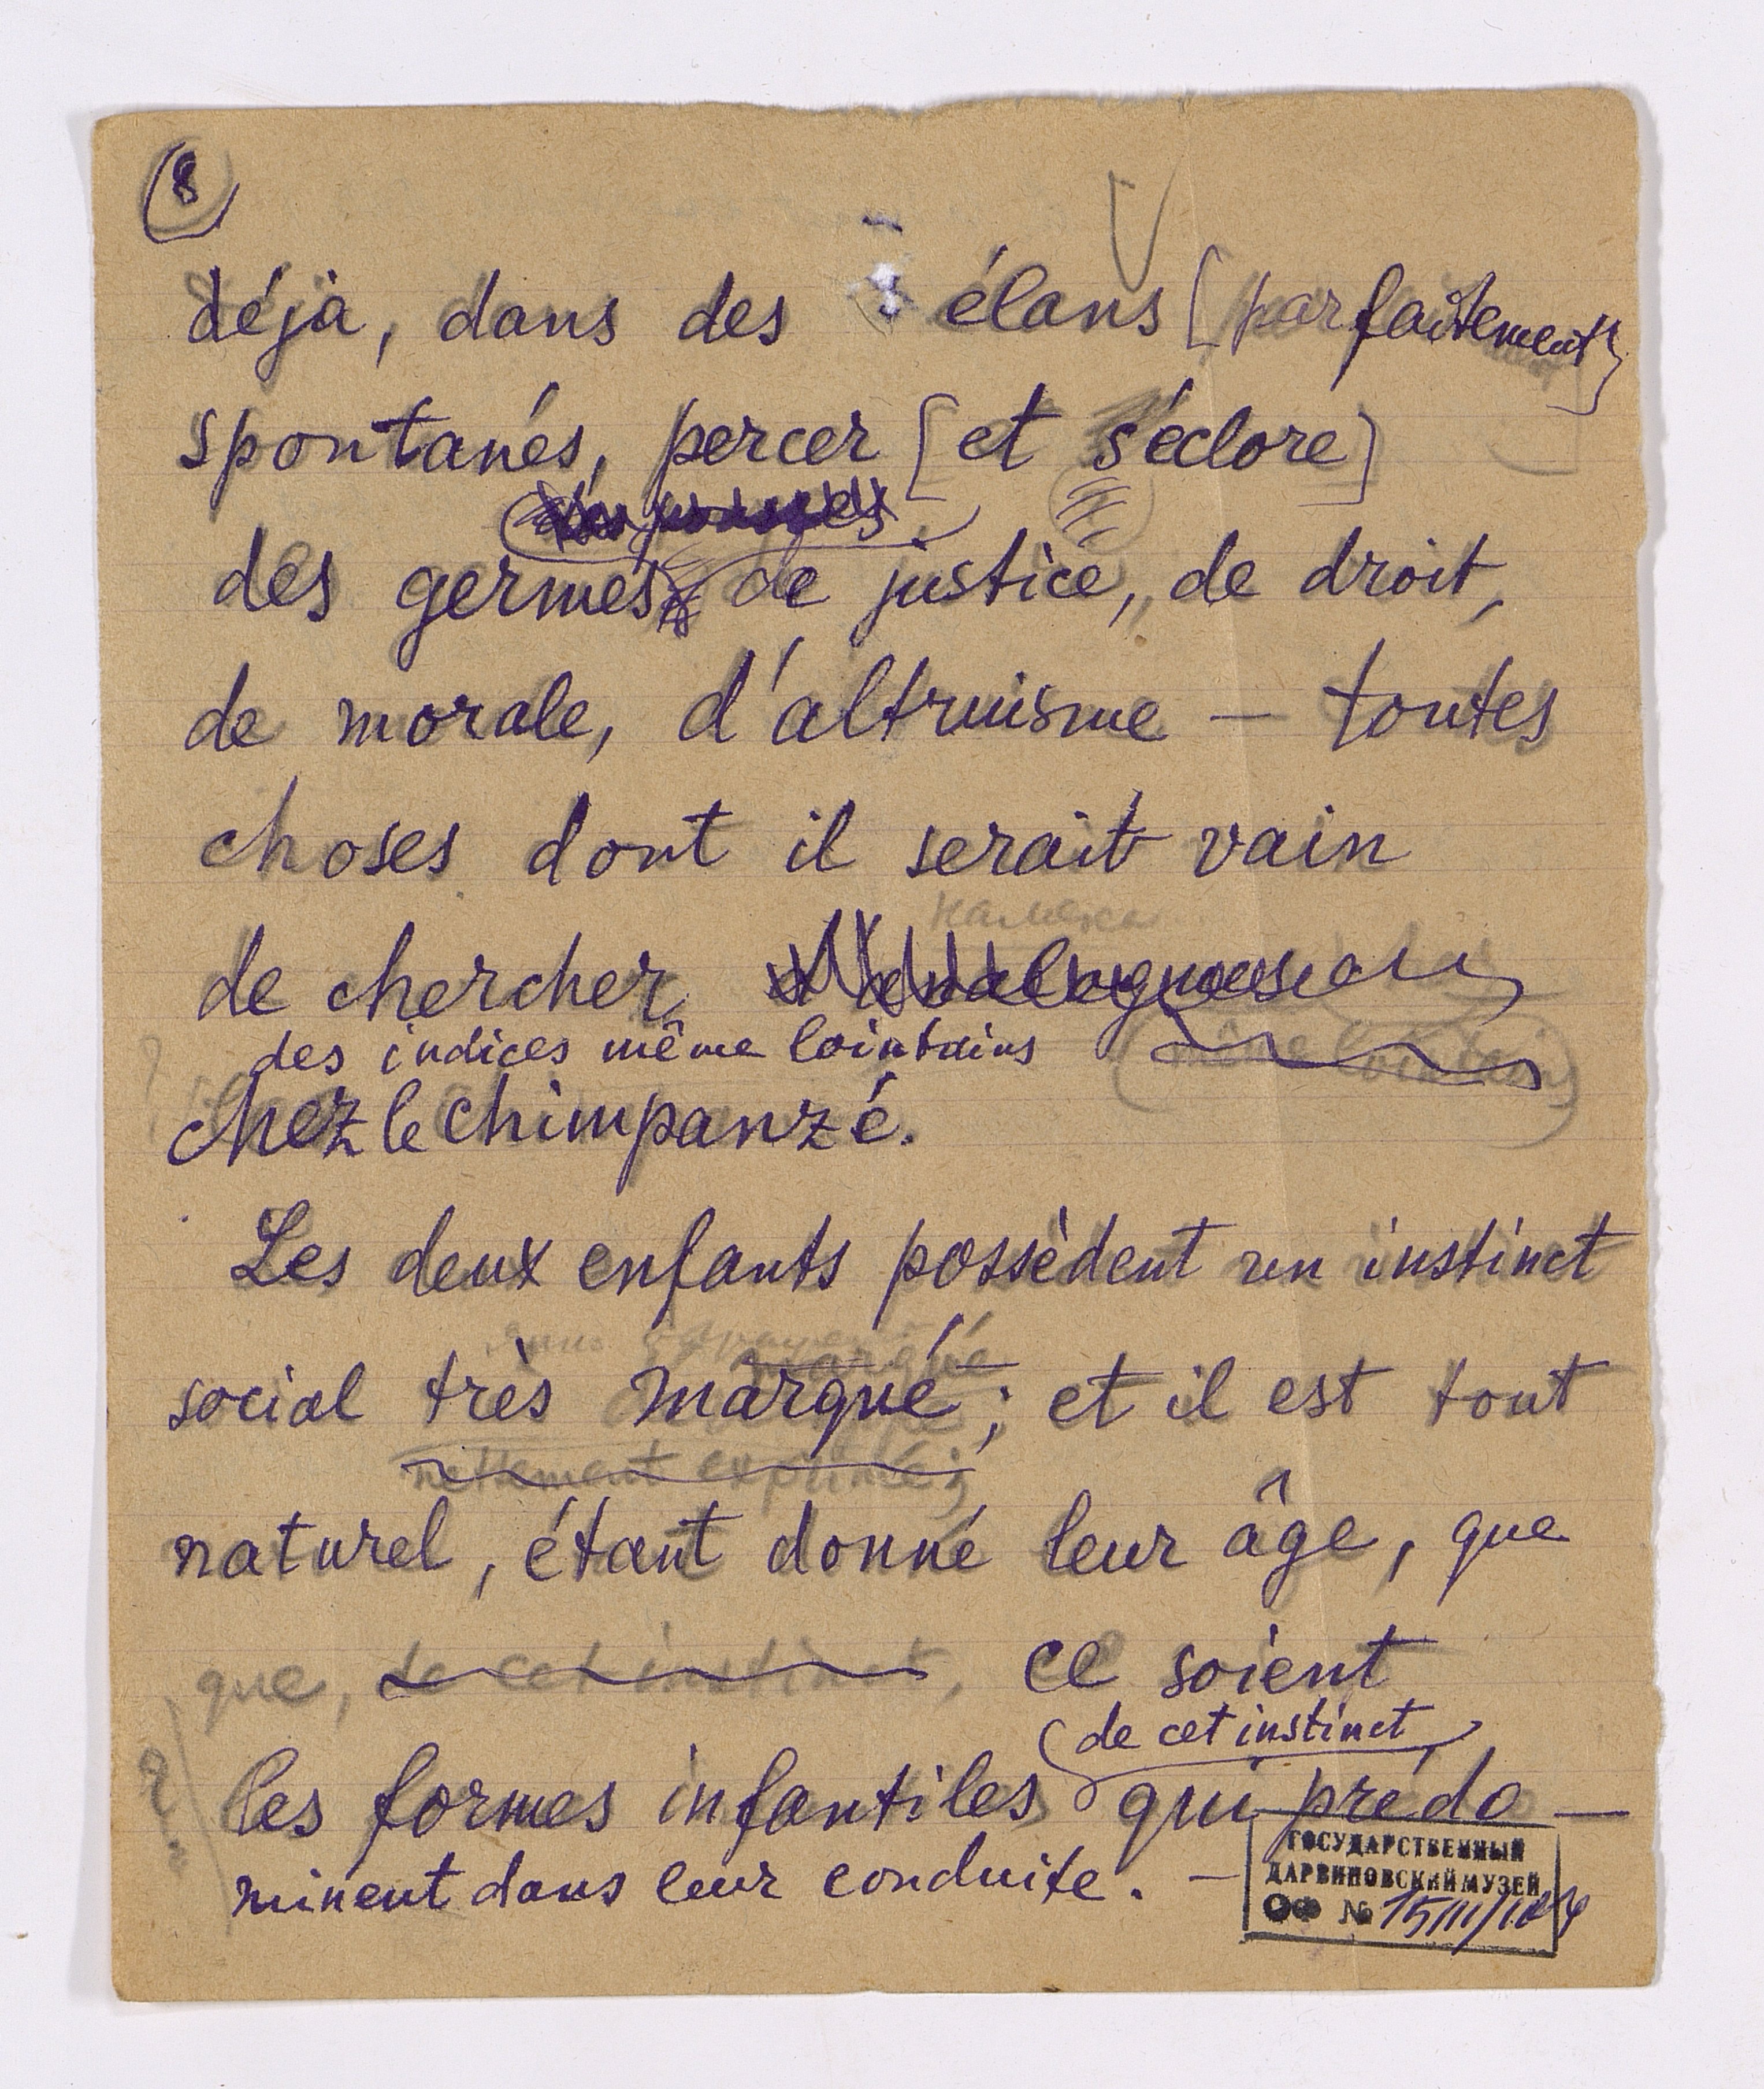 8
déjà, dans des élans [parfaitement]
spontanés, percer [et s'éclore]
des germes de justice, de droit,
de morale, d'altruisme — toutes
choses dont il serait vain
de chercher
des indices même lointains
chez le chimpanzé.
Les deux enfants possèdent un instinct
social très marqué; et il est tout
nettement exprimé;
naturel, étant donné leur âge, que
que, de cet instinct, ce soient
(de cet instinct)
les formes infantiles qui prédo—
minent dans leur conduite. —
ГОСУДАРСТВЕННЫЙ
ДАРВИНОВСКИЙ МУЗЕЙ
ОФ №